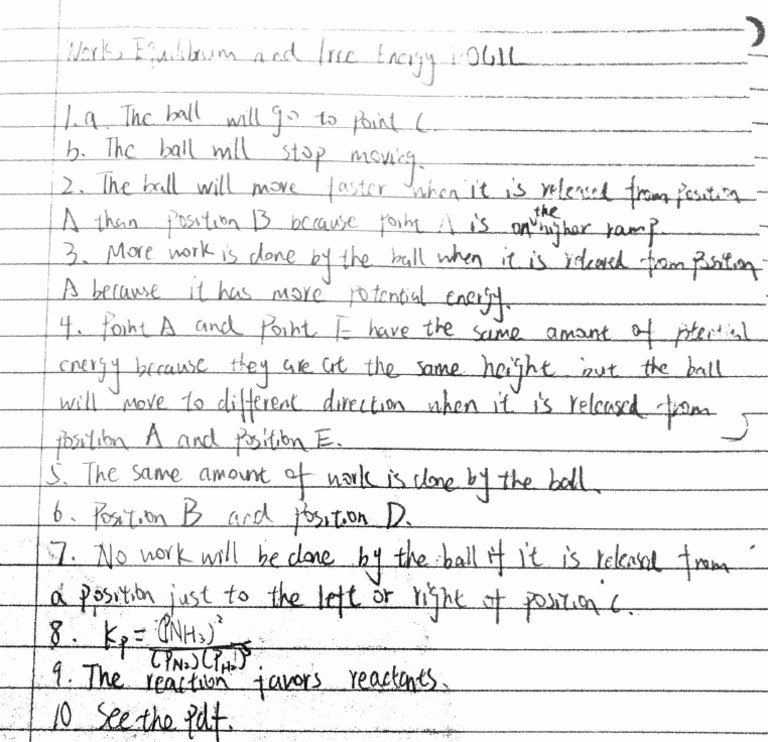 Work, Equilibrium and Free Energy POGIL
1. a. The ball will go to point C.
b. The ball will stop moving.
2. The ball will move faster when it is released from position
A than position B because point A is on the higher ramp.
3. More work is done by the ball when it is released from position
A because it has more potential energy.
4. Point A and Point E have the same amount of potential
energy because they are at the same height but the ball
will move to different direction when it is released from
position A and position E.
5. The same amount of work is done by the ball.
6. Position B and position D.
7. No work will be done by the ball if it is released from
a position just to the left or right of position C.
8. Kp = (PNH₃)² / (PN₂)(PH₂)³
9. The reaction favors reactants.
10 See the pdf.